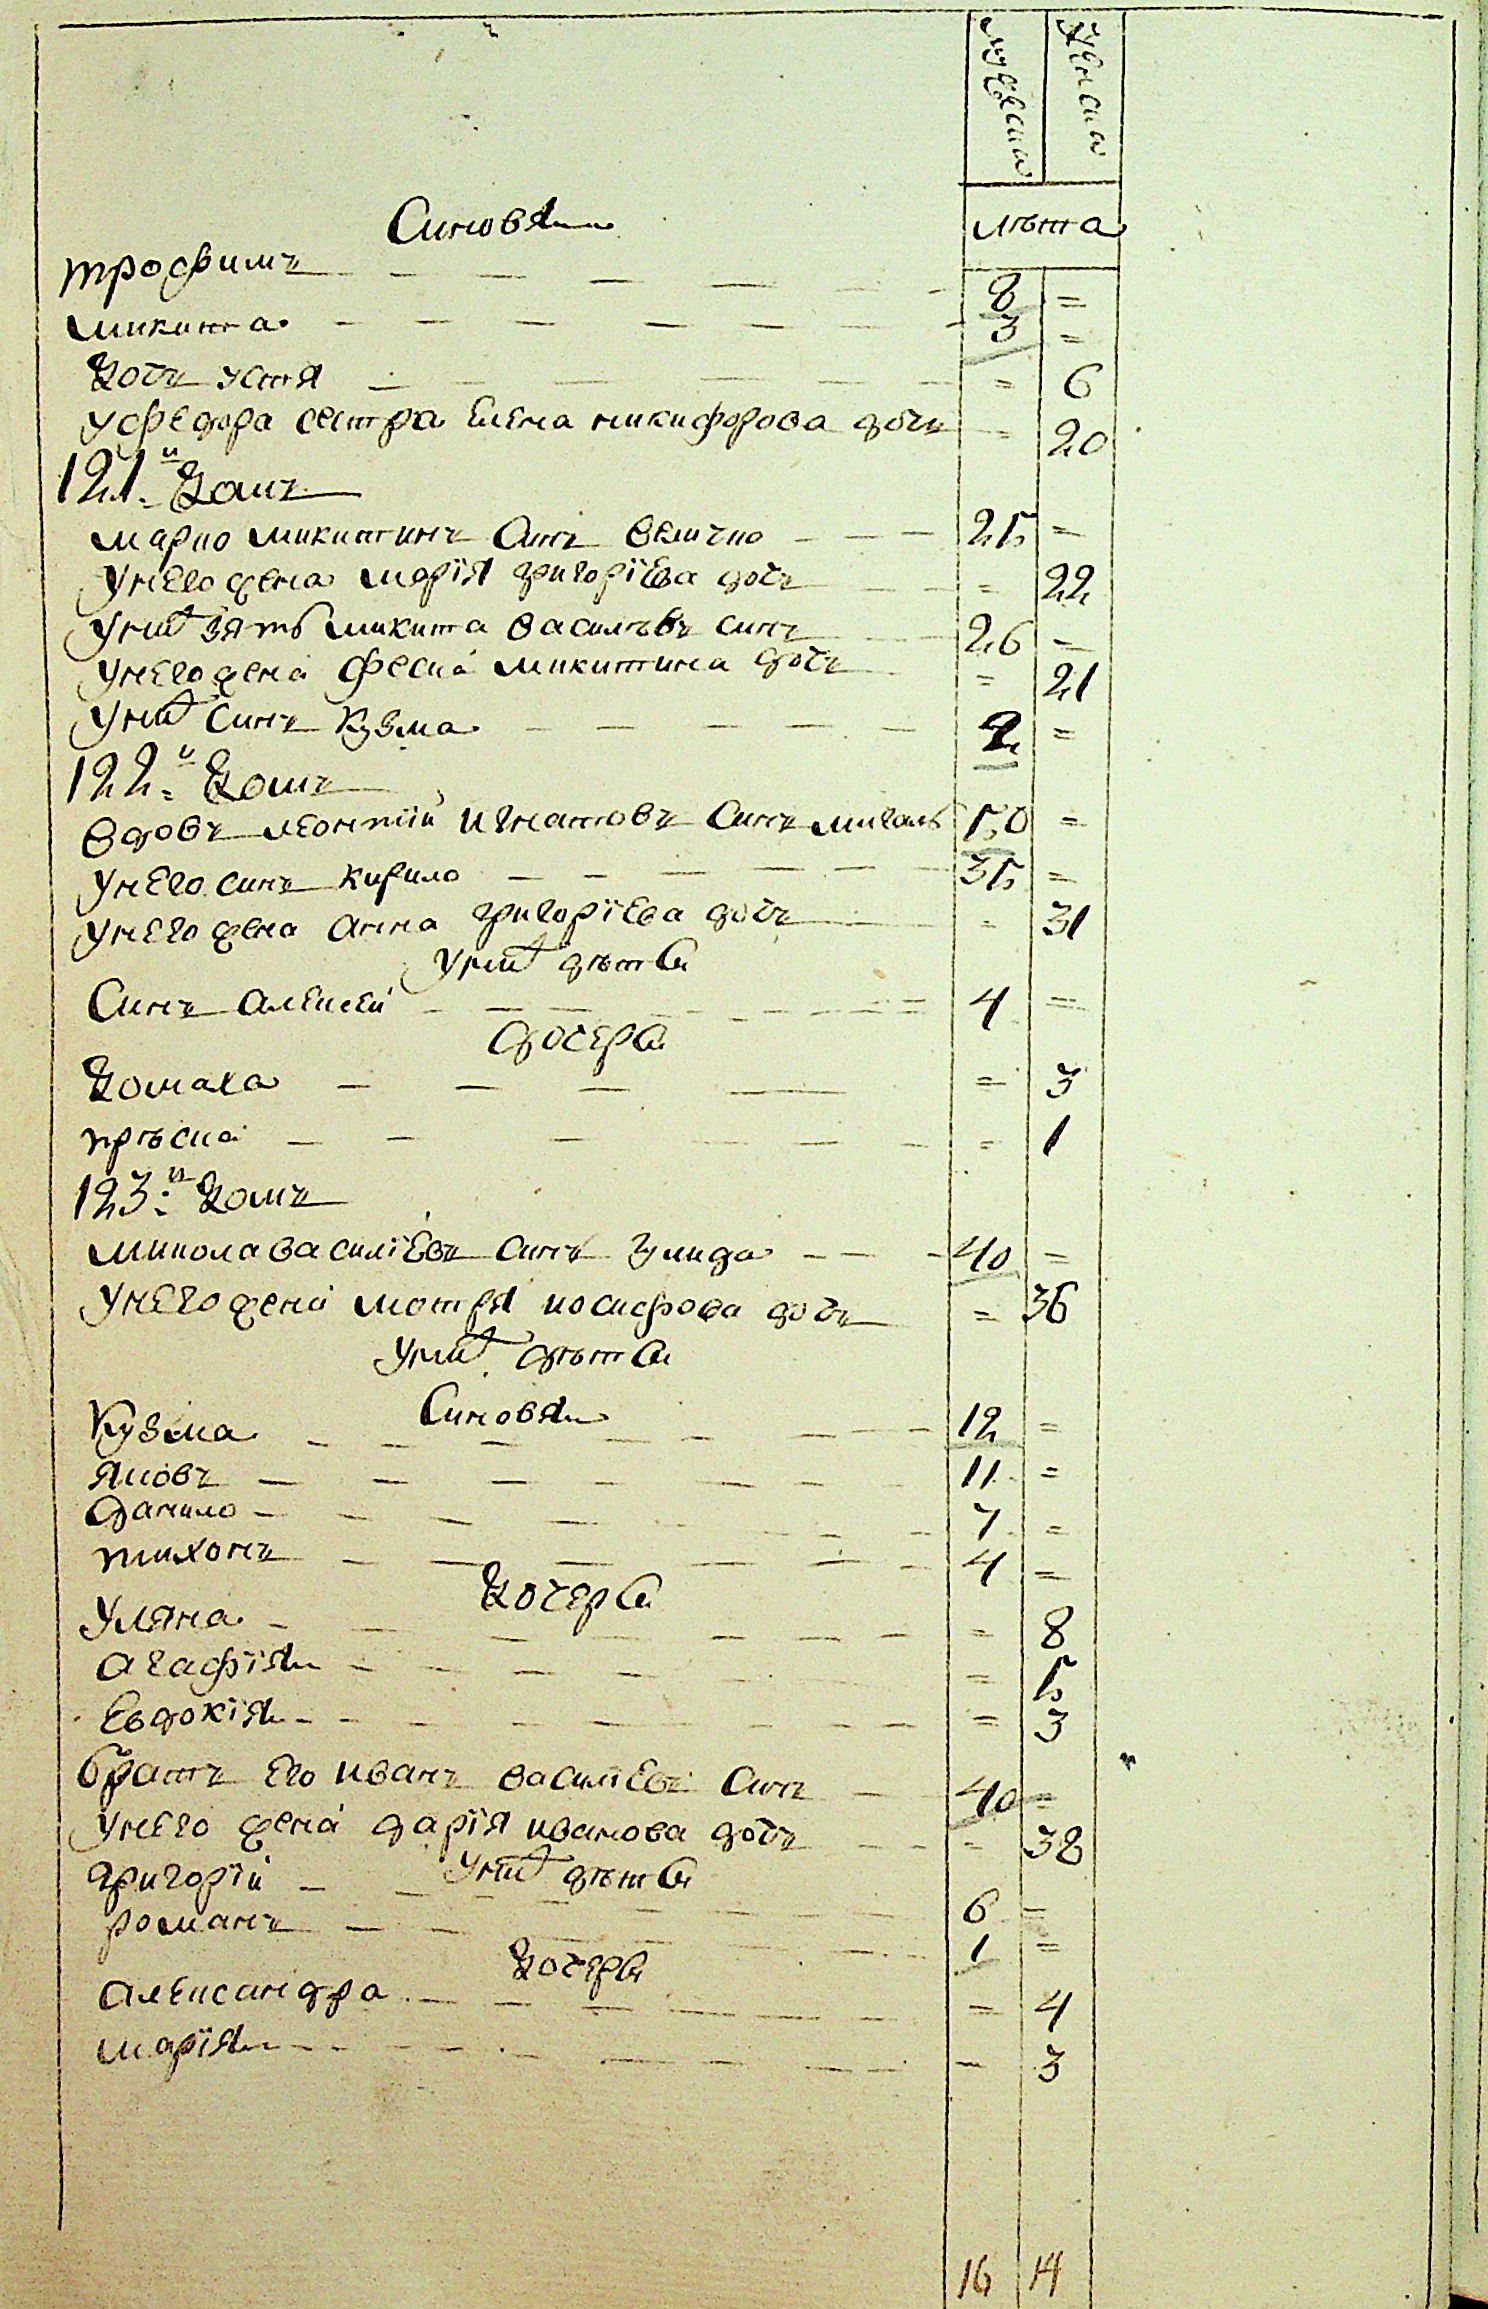 мужеска женска
Синовя
лѣта
трофимъ 8 =
микита 3 =
Дочь устя = 6
у федора сестра Елена никифорова дочь = 20
121.й Домъ
марко микитинъ Синъ величко 25 =
У него жена марїя григорїева дочь = 22
У них зять микита василѣвъ синъ 26 =
У него жена феска микитина дочь = 21
У них синъ Кузма 2 =
122.й Домъ
вдовъ леонтїй игнатовъ Синъ мигаль 50 =
У него синъ кирило 35 =
У него жена анна григорїева дочь = 31
У них дѣти
Синъ алексей 4 =
дочери
Домаха = 3
прѣска = 1
123.й Домъ
микола василїевъ синъ гмида 40 =
У него жена мотря иосифова дочь = 36
У них дѣти
Синовя
Кузма 12 =
яковъ 11 =
данило 7 =
тихонъ 4 =
Дочери
Уляна = 8
агафїя = 5
Евдокїя = 3
братъ Его иванъ василїевъ Синъ 40 =
У него жена дарїя иванова дочь = 38
У них дѣти
григорїй 6 =
романъ 1 =
Дочери
александра = 4
марїя = 3
16 14